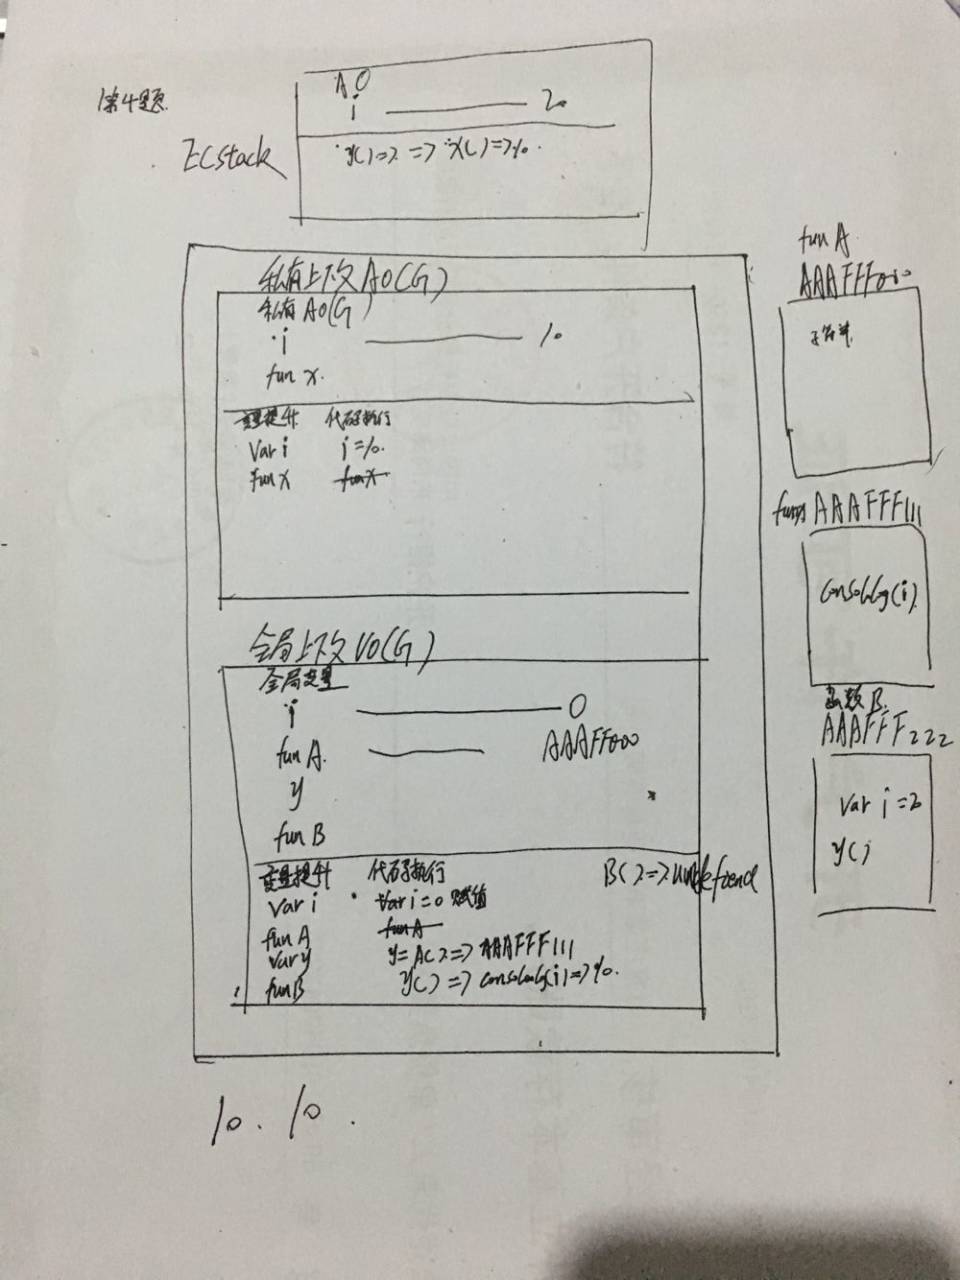 第4题
AO
i 20
ECstack
y()=> => x()=>10.
私有上下文AO(G)
私有AO(G)
i 10
fun x.
变量提升 代码执行
Var i i=10.
fun x fun x
全局上下文VO(G)
全局变量
i 0
fun A. AAAFFF000
y
fun B
变量提升 代码执行 B()=>undefined
Var i Var i=0 赋值
fun A fun A
Var y y=A()=>AAAFFF111
fun B y()=>console.log(i)=>10.
fun A
AAAFFF000
字符串
fun x AAAFFF111
console.log(i)
函数B
AAAFFF222
Var i=20
y()
10. 10.